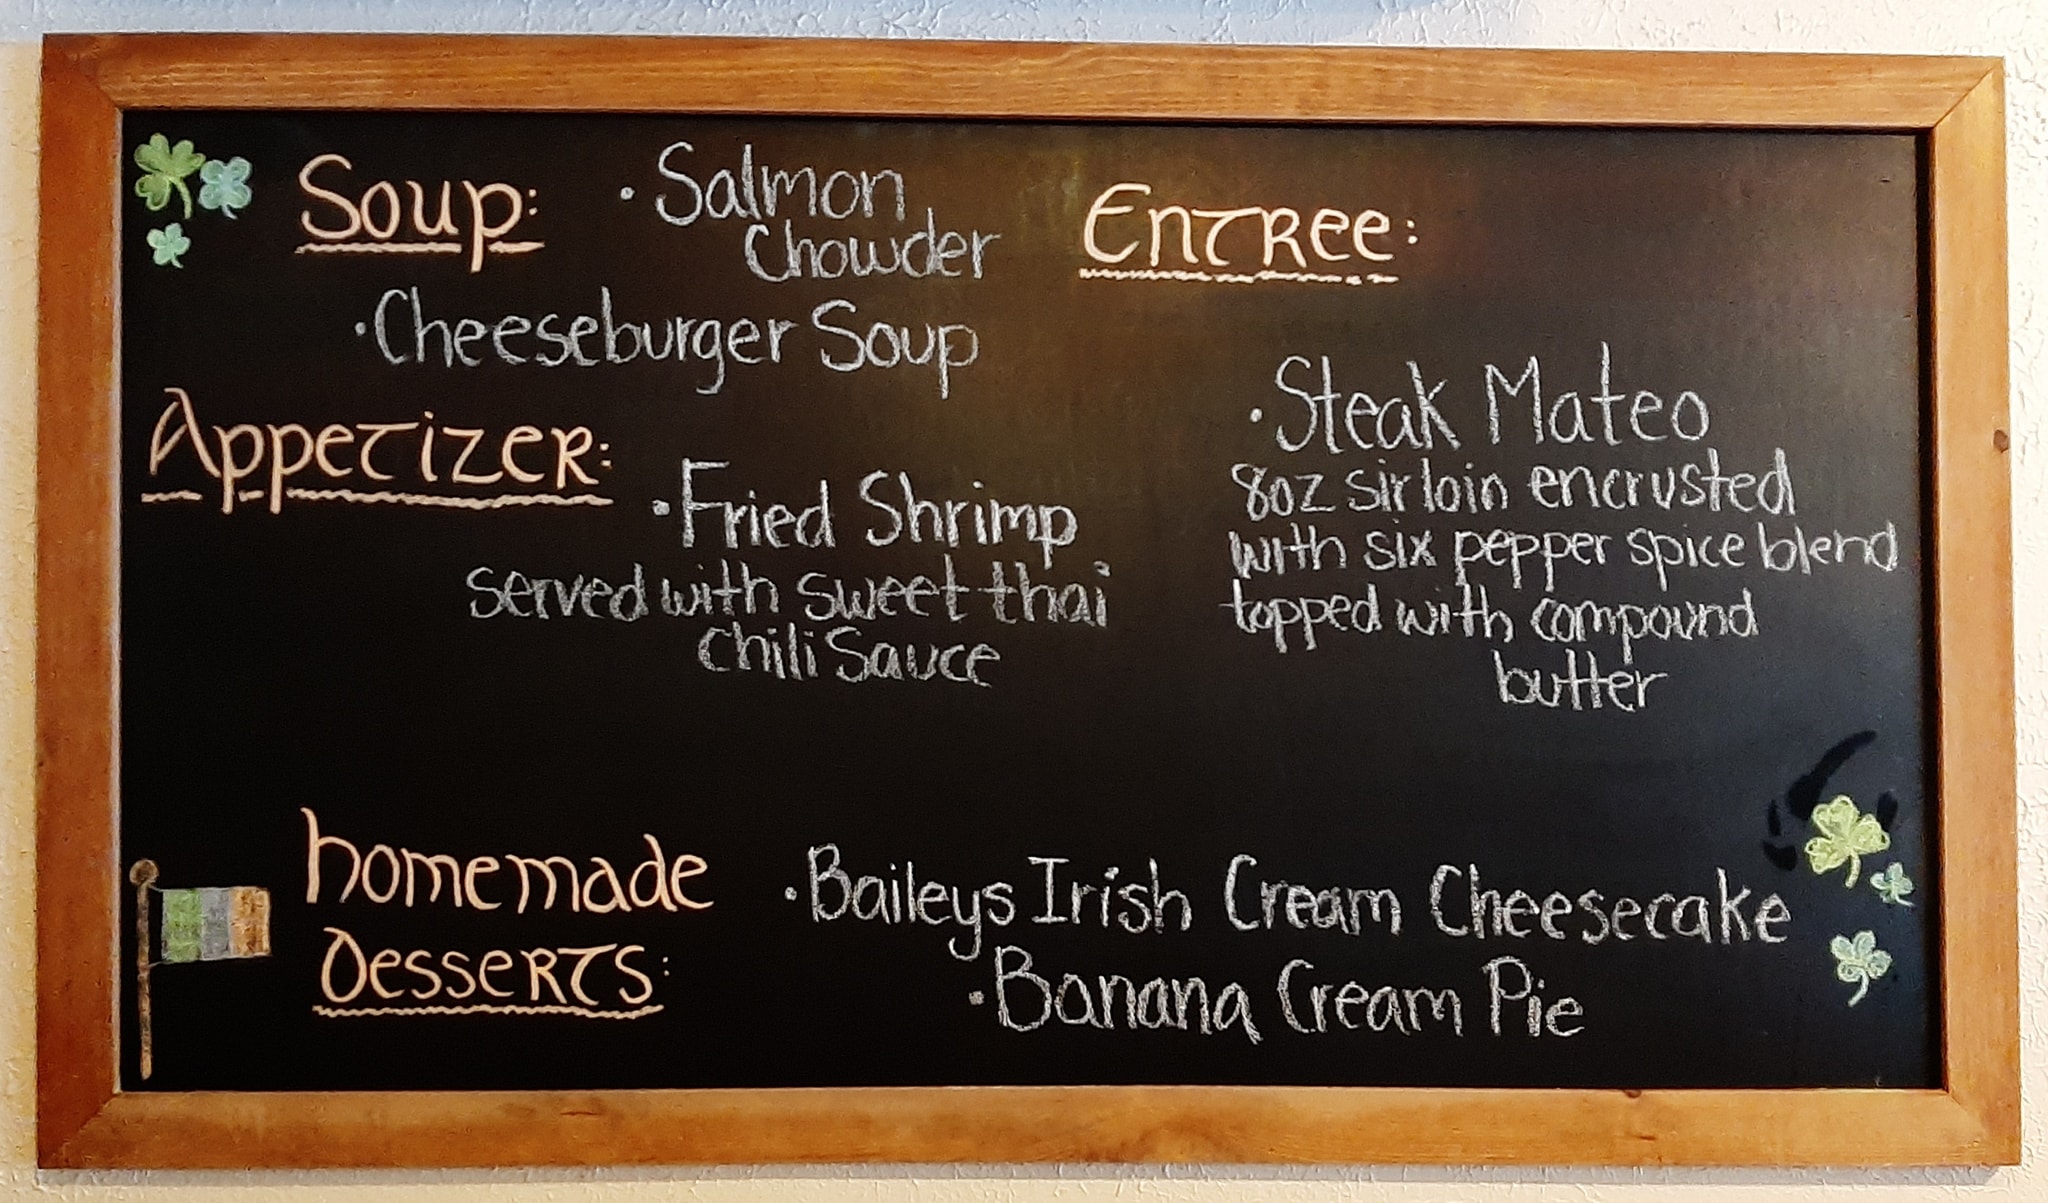 Soup:
• Salmon
Chowder
• Cheeseburger Soup
Appetizer:
• Fried Shrimp
served with sweet thai
chili Sauce
Entree:
• Steak Mateo
8oz sirloin encrusted
with six pepper spice blend
topped with compound
butter
homemade
Desserts:
• Baileys Irish Cream Cheesecake
• Banana Cream Pie